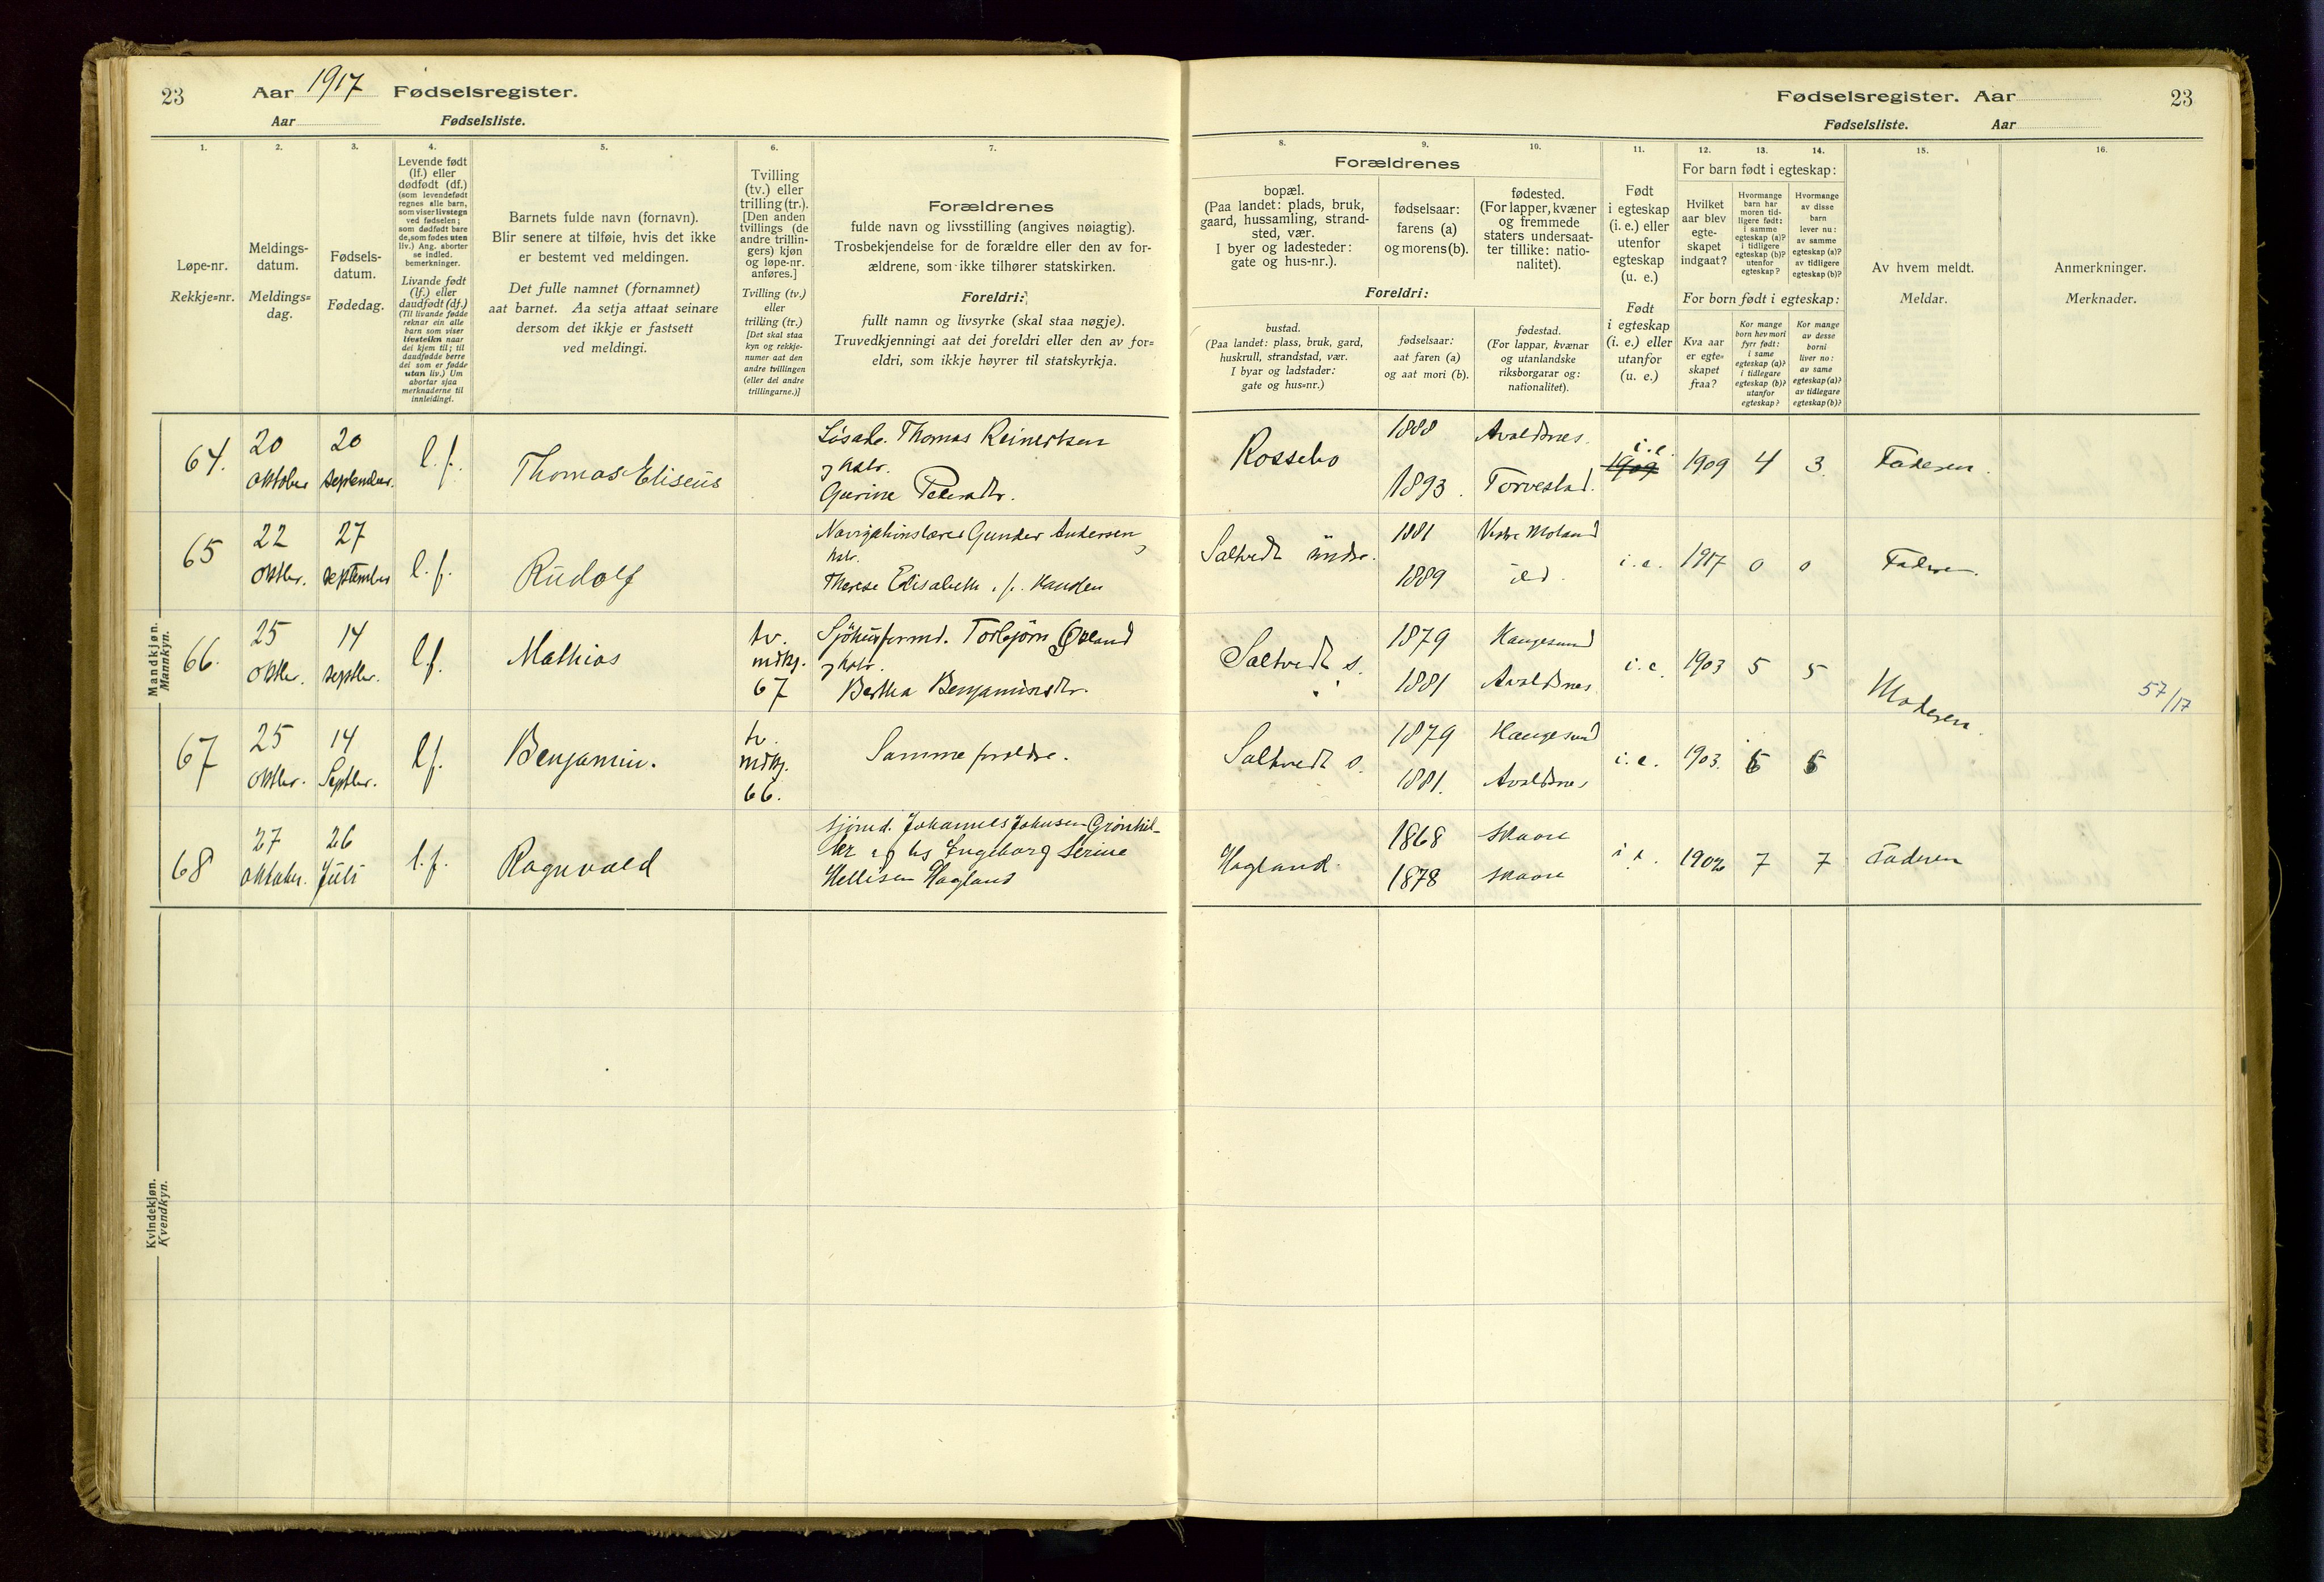 23 Aar 1917 Fødselsregister.
Aar Fødselsliste.
Fødselsregister. Aar 23
Fødselsliste. Aar
1. 2. 3. 4. 5. 6. 7.
Løpe-nr.
Rekkje=nr.
Meldings-
datum.
Meldings=
dag.
Fødsels-
datum.
Fødedag.
Levende født
(lf.) eller
dødfødt (df.)
(som levendefødt
regnes alle barn,
som viser livstegn
ved fødselen;
som dødfødt bare
de, som fødes uten
liv.) Ang. aborter
se indled.
bemerkninger.
Livande født
(lf.) eller
daudfødt (df.)
(Til livande fødde
reknar ein alle
barn som viser
livsteikn naar
dei kjem til; til
daudfødde berre
dei som er fødde
utan liv.) Um
abortar sjaa
merknaderne til
innleidingi.
Barnets fulde navn (fornavn).
Blir senere at tilføie, hvis det ikke
er bestemt ved meldingen.
Det fulle namnet (fornamnet)
aat barnet. Aa setja attaat seinare
dersom det ikkje er fastsett
ved meldingi.
Tvilling
(tv.) eller
trilling (tr.).
[Den anden
tvillings (de
andre trillin-
gers) kjøn
og løpe-nr.
anføres.]
Tvilling (tv.)
eller
trilling (tr.)
[Det skal staa
kyn og rekkje-
numer aat den
andre tvillingen
(eller dei andre
trillingarne.)]
Forældrenes
fulde navn og livsstilling (angives nøiagtig).
Trosbekjendelse for de forældre eller den av for-
ældrene, som ikke tilhører statskirken.
Foreldri:
fullt namn og livsyrke (skal staa nøgje).
Truvedkjenningi aat dei foreldri eller den av for=
eldri, som ikkje høyrer til statskyrkja.
8. 9. 10. 11. 12. 13. 14. 15. 16.
Forældrenes
bopæl.
(Paa landet: plads, bruk,
gaard, hussamling, strand-
sted, vær.
I byer og ladesteder:
gate og hus-nr.).
fødselsaar:
farens (a)
og morens (b).
fødested.
(For lapper, kvæner
og fremmede
staters undersaat-
ter tillike: natio-
nalitet).
Foreldri:
bustad.
(Paa landet: plass, bruk, gard,
huskrull, strandstad, vær.
I byar og ladstader:
gate og hus=nr.)
fødselsaar:
aat faren (a)
og aat mori (b).
fødestad.
(For lappar, kvænar
og utanlandske
riksborgarar og:
nationalitet).
Født
i egteskap
(i. e.) eller
utenfor
egteskap
(u. e.)
Født
i egteskap
(i. e.) eller
utanfor
(u. e.)
For barn født i egteskap:
Hvilket
aar blev
egte-
skapet
indgaat?
Hvormange
barn har
moren tid-
ligere født:
i samme
egteskap (a)?
i tidligere
egteskap (b)?
utenfor
egteskap?
Hvormange
av disse
barn
lever nu:
av samme
egteskap (a)?
av tidligere
egteskap (b)?
For born født i egteskap:
Kva aar
er egte=
skapet
fraa?
Kor mange
born hev mori
fyrr født:
i same
egteskap (a)?
i tidlegare
egteskap (b)?
utanfor
egteskap?
Kor mange
av desse
borni
liver no:
av same
egteskap (a)?
av tidlegare
egteskap (b)?
Av hvem meldt.
Meldar.
Anmerkninger.
Merknader.
Mandkjøn.
Mannkyn.
64. 20 oktober 20 september. l.f. Thomas Eliseus
Thomas Reinertsen
Gurine
Rossebø 1888 Avaldsnes.
1893. Torvestad.
i.e. 1909 1909 4 3. Faderen.
65 22 oktbr. 27 september l.f. Rudolf
Navigationslærer Gunder Andersen
Therese Elisabeth, f. Hauden
Saltvedt indre. 1881 Vestre Moland
1889
i.e. 1917 0 0 Faderen.
66. 25 oktbr. 14 septbr. l.f. Mathias tv. mdkj. 67
Torbjørn
Bertha Benjaminsdtr.
Saltvedt s. 1879 Haugesund
1881 Avaldsnes
i.e 1903 5 5 Moderen. 57/17
67 25 oktbr. 14 Septbr. l.f. Benjamin. tv. mdkj. 66.
Samme forældre.
Saltvedt s. 1879 Haugesund
1881. Avaldsnes
i.e. 1903. 5 5
68 27 oktober. 26 Juli l.f. Ragnvald
Sjømd. Johannes Johnsen Grønhil-
ler og hs Ingeborg Serine
Hellisen Hagland
Hagland. 1868 Skaare
1878 Skaare
i.e. 1902 7 7 Faderen
Kvindekjøn.
Kvendkyn.